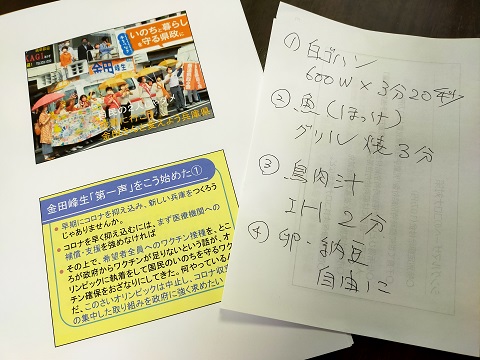 いのちと暮らし
を守る県政に
金田峰生「第一声」をこう始めた①
● 早期にコロナを抑え込み、新しい兵庫をつくろう
じゃありませんか。
● コロナを早く抑え込むには、まず医療機関への
補償・支援を強めなければ
● その上で、希望者全員へのワクチン接種を、とこ
ろが政府からワクチンが足りないという話が、オ
リンピックに執着をして国民のいのちを守るワク
チン確保をおざなりにしてきた。何やっているん
だ、このさいオリンピックは中止し、コロナ収
の集中した取り組みを政府に強く求めたい
① 白ゴハン
600W×3分20秒
② 魚(ほっけ)
グリル 焼3分
③ 鳥肉汁
IH 2分
④ 卵・納豆
自由に